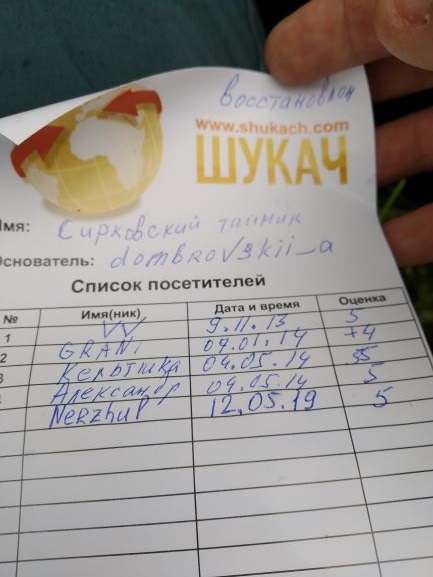 восстановлен
www.shukach.com
ШУКАЧ
Имя: Сирковский тайник
Основатель: dombrovskii_a
Список посетителей
№ Имя(ник) Дата и время Оценка
1 VV 9.11.13 5
2 GRANi 04.01.14 +4
3 Кельтика 04.05.14 55
Александр 04.05.14 5
Nerzhul 12.05.19 5